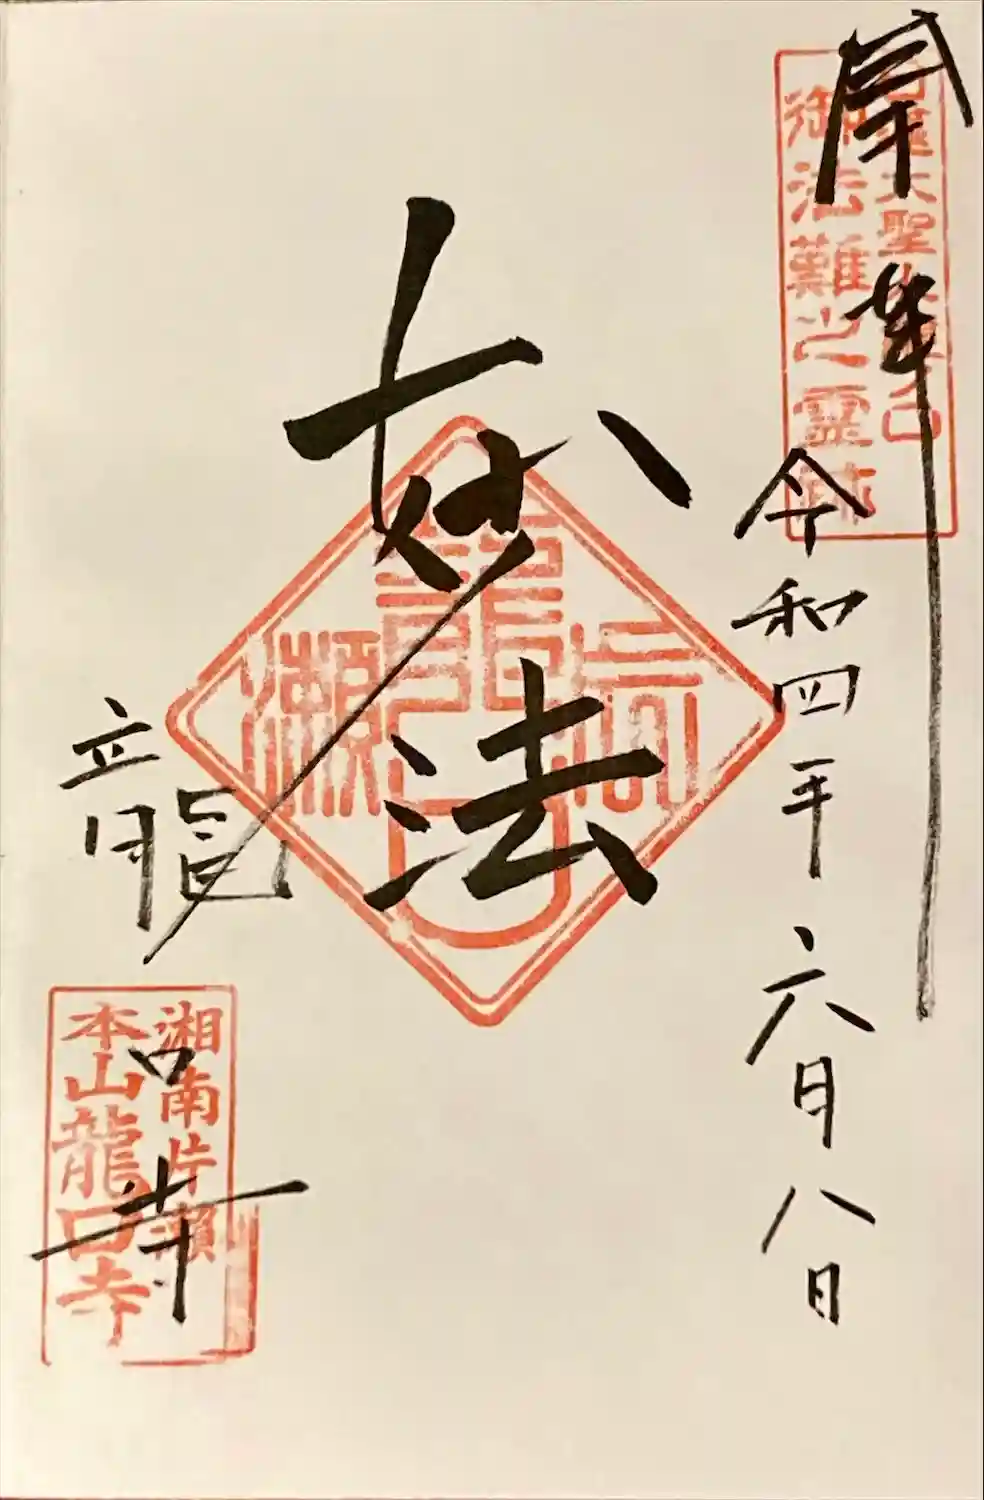 奉拝
日蓮大聖人龍ノ口
御法難之霊跡
令和四年六月八日
妙法
龍口寺
湘南片瀬
本山龍口寺